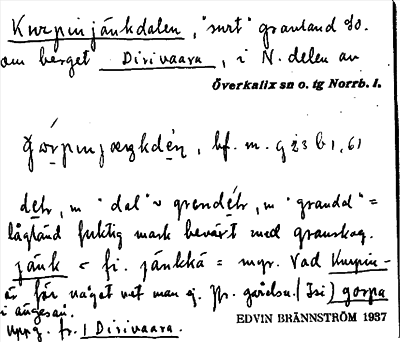 Kurpinjänkdalen, "surt" granland SO.
om berget Dirivaara, i N. delen av
Överkalix sn o. tg Norrb. l.
bf. m. g 23 b 1, 61
dehr, m "dal" ~ grendehr, m "grandal" =
lågländ fuktig mark bevärt med granskog.
jänk < fi. jänkkä = myr. Vad Kurpin-
är för något vet man ej. Jfr. gårdsn. (Isi) gorpa
i ängesån.
Uppg. fr. Dirivaara.
EDVIN BRÄNNSTRÖM 1937